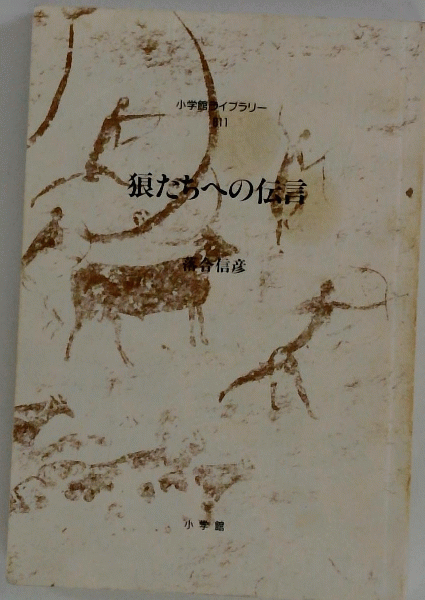 小学館ライブラリー
811
狼たちへの伝言
落合信彦
小学館